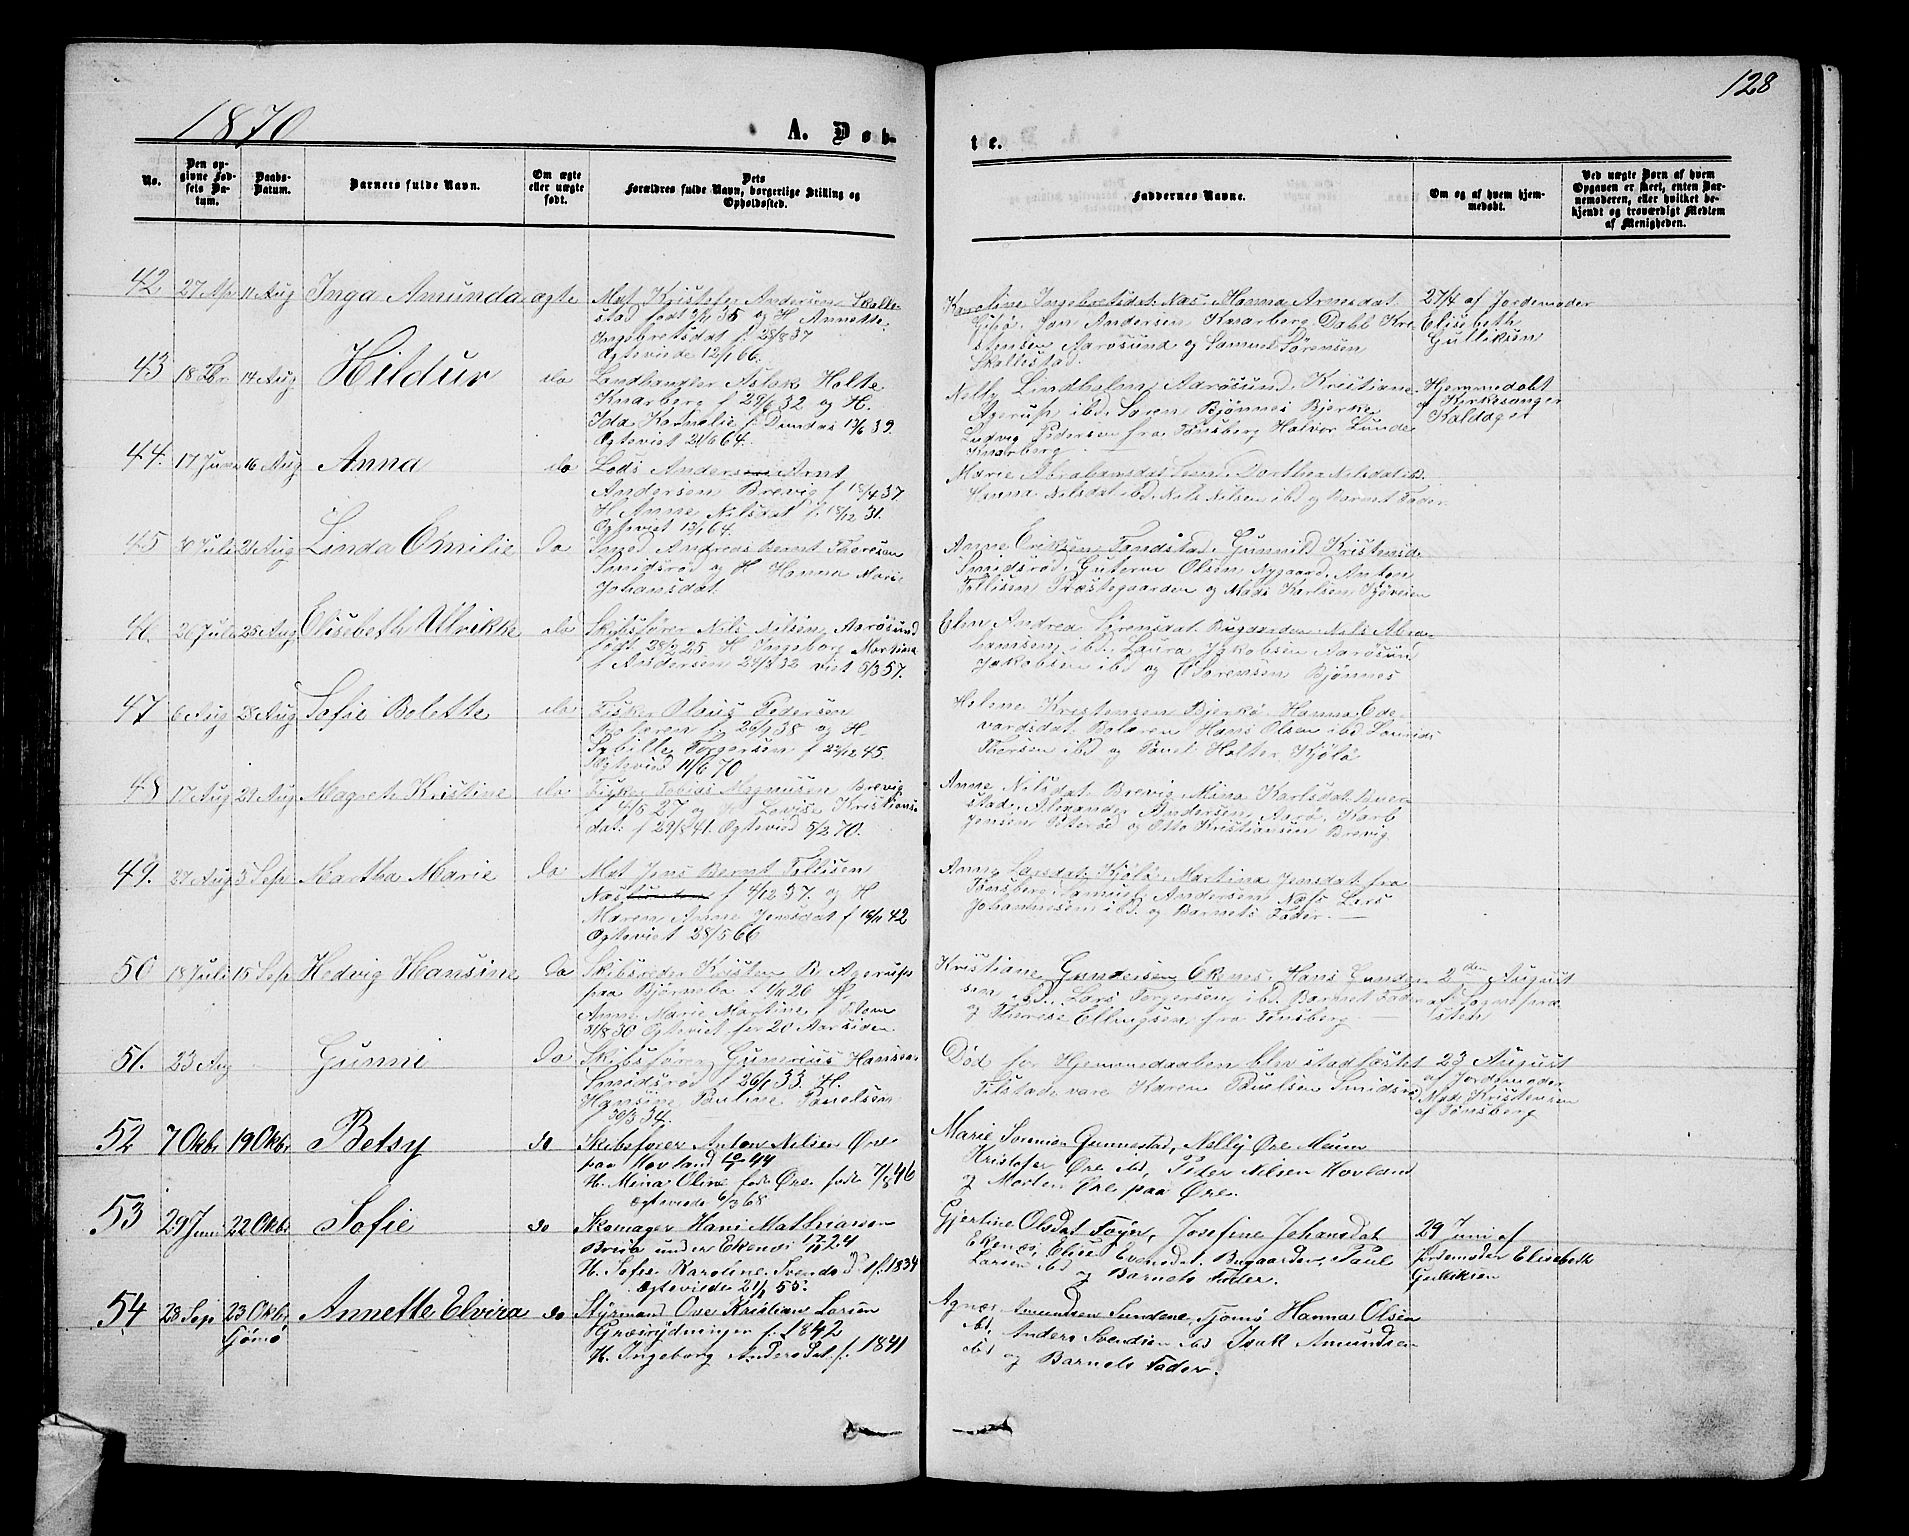 1870
A. Døb-
te.
128
No.
Den op-
givne Fød-
sels Da-
tum.
Daabs-
Datum.
Barnets fulde Navn.
Om ægte
eller uægte
født.
Dets
Forældres fulde Navn, borgerlige Stilling og
Opholdssted.
Faddernes Navne.
Om og af hvem hjem-
medøbt.
Ved uægte Børn af hvem
Opgaven er skeet, enten Bar-
nemoderen, eller hvilket be-
kjendt og troværdigt Medlem
af Menigheden.
42. 27 Apr 11 Aug Inga Amunda ægte Mat Kristofer Andersen Skalle-
stad født 35 og H Annette
Ingebretsdat f. 28/8 37
Ægteviede 12/1 66.
Karoline Ingebretsdat Næs, Hanna Arnesdat
Jan Andersen Knarberg, Dahl Kri
stensen Aarøsund og Samuel Sørensen
Skallestad
27/4 af Jordemoder
Elisebeth
Gulliksen
43 18 14 Aug Hildur do Landhandler Aslak Holte
Knarberg f 29/6 32 og H.
Ida Kornelie f. Dundas 13/6 39.
Ægteviet 21/6 64.
Nelly Lindholm Aarøsund, Kristiane
Agerup ibd. Søren Bjønnes Bjerke
Ludvig Pedersen fra Tønsberg Halvor Lunde
Knarberg
Hjemmedøbt
af Kirkesanger
Kaldager
44. 17 Juni 16 Aug Anna do Lods Arnt
Andersen Brevig f 18/4 37
H Anne Nilsdat f. 18/12 31.
Ægteviet 13/1 64.
Marie Abrahamsdat Dorthea Nilsdat ibd
Hanna Nilsdat ibd. Nils Nilsen ibd og Barnet Fader
45 Juli 21 Aug Linda Emilie do Andreas Bernt Thoresen
Smidsrød og H Hanna Marie
Johansdat.
Anne Eriksen Gunnild Kristensd
Smidsrød, Guterm Olsen Nygaard, Anton
Tollisen Præstegaarden og Mads Karlsen
46 20 Juli 25 Aug Elisebeth Ulrikke do Skibsfører Nils Nilsen Aarøsund
født 28/2 25 H Ingeborg Martina
f Andersen 24/8 32 viet 5/3 57.
Andrea Sørensdat Bugaarden, Nils Abra-
hamsen ibd. Laura Jakobsen Aarøsun
Jakobsen ibd og Sørensen Bjønnes
47 6 Aug 28 Aug Sofie Bolette do Fisker Olaus Pedersen
Bolæren f. 20/1 38 og H
Sybille Torgersen f 22/12 45.
Ægteviet 11/6 70
Helene Kristensen Bjerkø, Hanna Ed-
vardsdat Bolæren Hans Olsen ibd
Thorsen ibd og Povel Holter Kjølø
48 17 Aug 21 Aug Magrete Kristine do Fisker Tobias Magnusen Brevig
f 4/5 27 og H Lovise Kristians
dat: f 29/8 41. Ægteviet 5/2 70.
Anne Nilsdat Brevig, Mina Karlsdat Buer-
stad, Alexander Andersen Aarø, Karl
Jensen og Otto Kristiansen Brevig
49. 27 Aug 3 Sep Martha Marie do Mat Jens Bernt Tollisen
Næs f 4/12 37. og H
Maren Anne Jensdat f 18/11 42
Ægteviet 28/5 66
Anne Larsdat Kjølø, Martina Jensdat fra
Tønsberg, Samuel Andersen Næs, Lars
Johannesen ibd. og Barnets Fader.
50 18 Juli 15 Sep Hedvig Hansine do Skibsreder Kristen B. Agerup
paa Bjørneba f 4/11 26 H
Anne Marie Martine f
31/8 30 Ægteviet for 20 Aar siden
Kristiane Gundersen Ekenes, Hans Gunder-
sen ibd. Lars Torgersen, ibd. Barnet Fader
og Therese Ellingsen fra Tønsberg
2den August
af Sognepræ-
sten
51. 23 Aug Gunni do Skibsfører Gunerius Hansen
Smidsrød f 26/1 33. H.
Hansine Pauline Paulsen
f 30/3 34.
Død før Hjemmedaaben blev stadfæstet
Tilstede vare Karen Poulsen Smidsrø
23 August
af Jordemoder
Mad. Kristensen
af Tønsberg
52 7 Okbr 19 Okbr Betsy do Skibsfører Anton Nilsen Øre
paa Hovland 44
H. Mina Oline født Øre født 7/8 46
Ægteviede 6/3 68
Marie Sørensen Gunnestad, Nelly Øre Meum
Kristofer Øre ibd, Peder Nilsen Hovland
og Morten Øre paa Øre.
53 29 Juni 22 Okbr Sofie do Skomager Hans Mathiasen
Breia under Ekenes 17/10 24
H. Sofie Karoline Svendsd f. 1834
Ægteviede 21/1 55.
Gjertine Olsdat Føyn, Josefine Johansdat
Ekenæs, Elise Evensdat Bugaarden, Paul
Larsen ibd
og Barnets Fader.
29 Juni af
Jordemoder Elisebeth
Gulliksen
54 28 Sep 23 Okbr
Tjømø Annette Elvira do Styrmand Ove Kristian Larsen
Græsrydningen f. 1842
H. Ingeborg Andersdat f. 1841
Agnes Amundsen Sundene, Tjømø Hanna Olsen
ibd, Anders Svendsen ibd Isak Amundsen
ibd
og Barnets Fader.